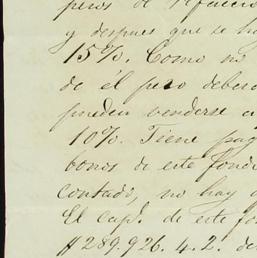 pesos de refaccio
y despues que se ha
15%. Como no
de él pero debera
pueden venderse a
10%. Tiene pag
bonos de este fondo
contado, no hay
El cap.l de este fo
$289.926.4.2. de